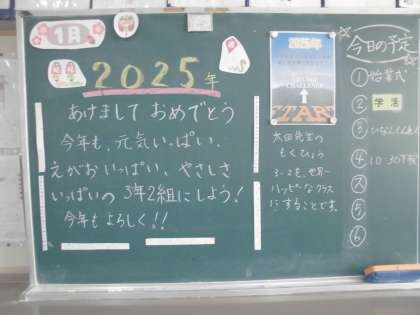 1月
2025年
あけまして おめでとう
今年も、元気いっぱい、
えがおいっぱい、やさしさ
いっぱいの 3年2組にしよう!
今年も よろしく!!
2025年
CHALLENGE
START
太田先生の
もくひょう
3-2を、世界一
ハッピーなクラス
にすることです。
今日の予定
① 始業式
② 学活
③
④ 10:30下校
⑤
⑥